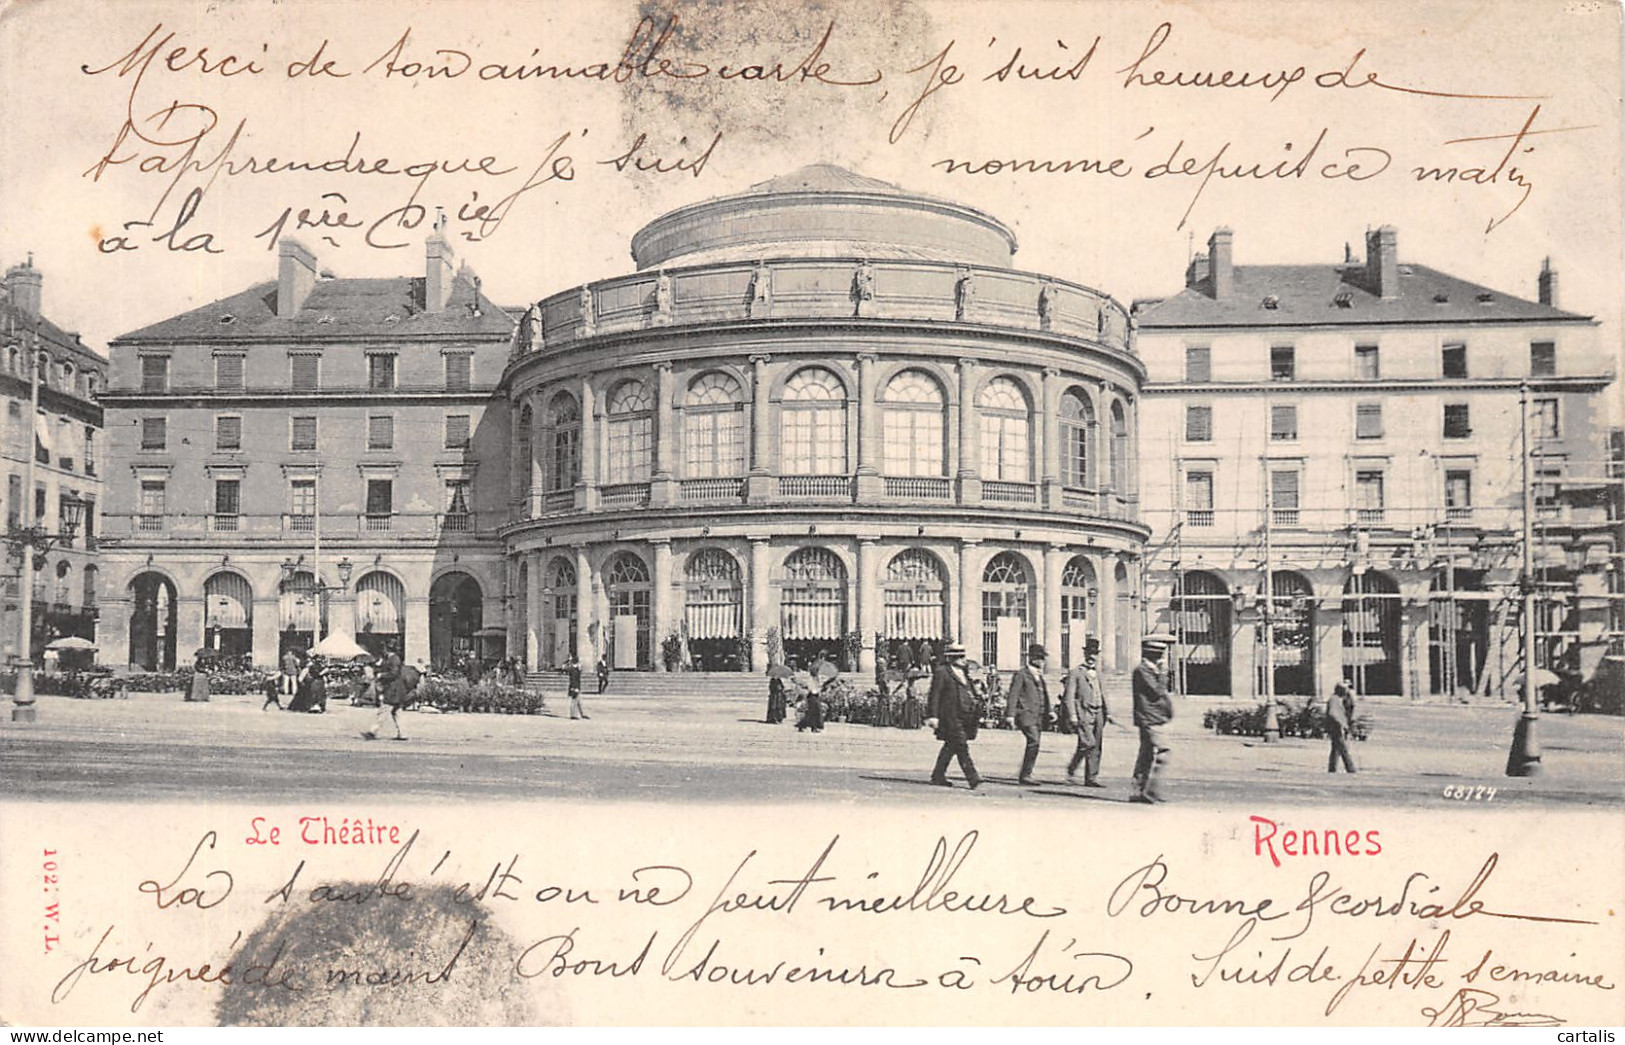 Merci de ton aimable carte, je suis heureux de
t'apprendre que je suis nommé depuis ce matin
à la 1ère Cie
68124
Le Théâtre
Rennes
102. W. L.
La santé est on ne peut meilleure Bonne & cordiale
poignée de mains Bons souvenirs à tous. Suis de petite semaine
cartalis